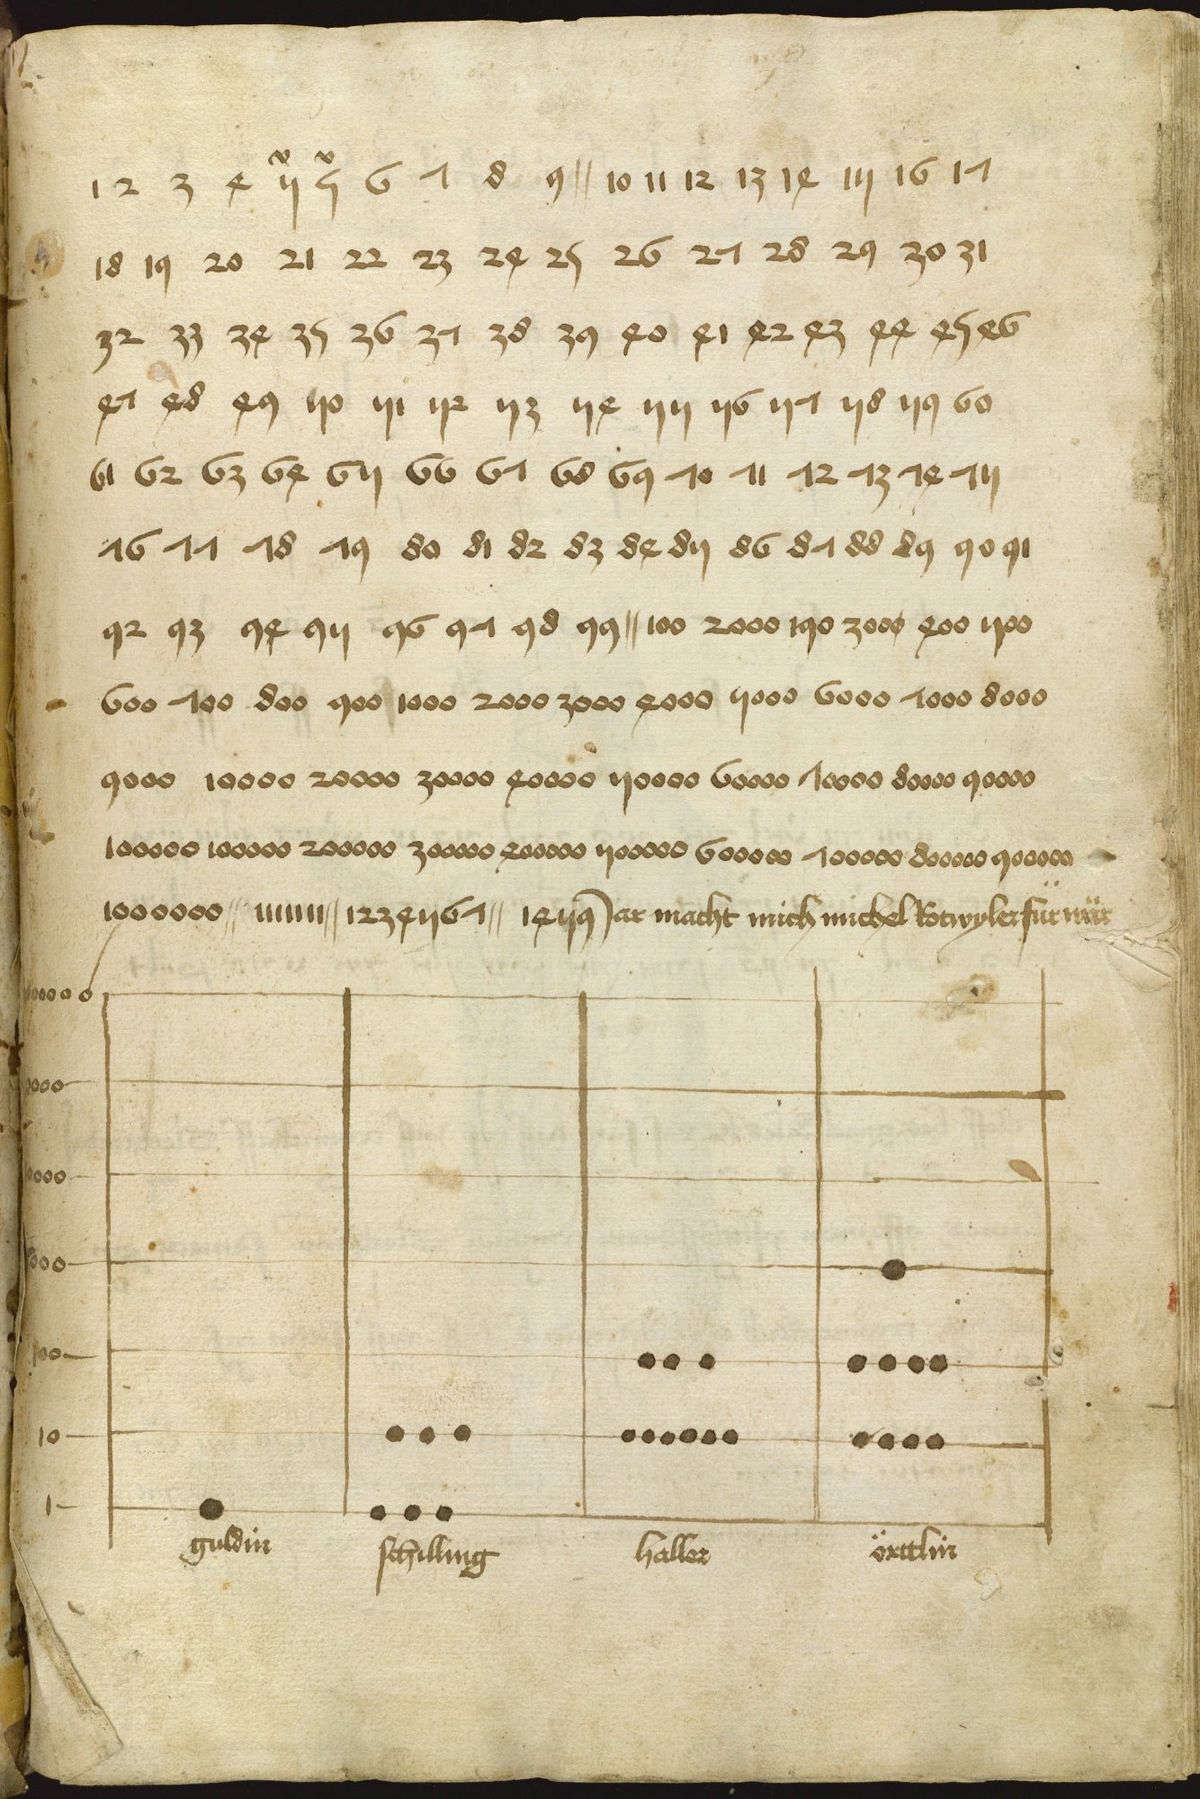 1 2 3 4 5 5 6 7 8 9 10 11 12 13 14 15 16 17
18 19 20 21 22 23 24 25 26 27 28 29 30 31
32 33 34 35 36 37 38 39 40 41 42 43 44 45 46
47 48 49 50 51 52 53 54 55 56 57 58 59 60
61 62 63 64 65 66 67 68 69 70 71 72 73 74 75
76 77 78 79 80 81 82 83 84 85 86 87 88 89 90 91
92 93 94 95 96 97 98 99 100 2000 190 3000 400 500
600 700 800 900 1000 2000 3000 4000 5000 6000 7000 8000
9000 10000 20000 30000 40000 50000 60000 70000 80000 90000
100000 100000 200000 300000 400000 500000 600000 700000 800000 900000
1000000 1111111 1234567 1459 Jar macht mich michel Rotwyler für wär
100
10
1
guldin schilling haller örttlin